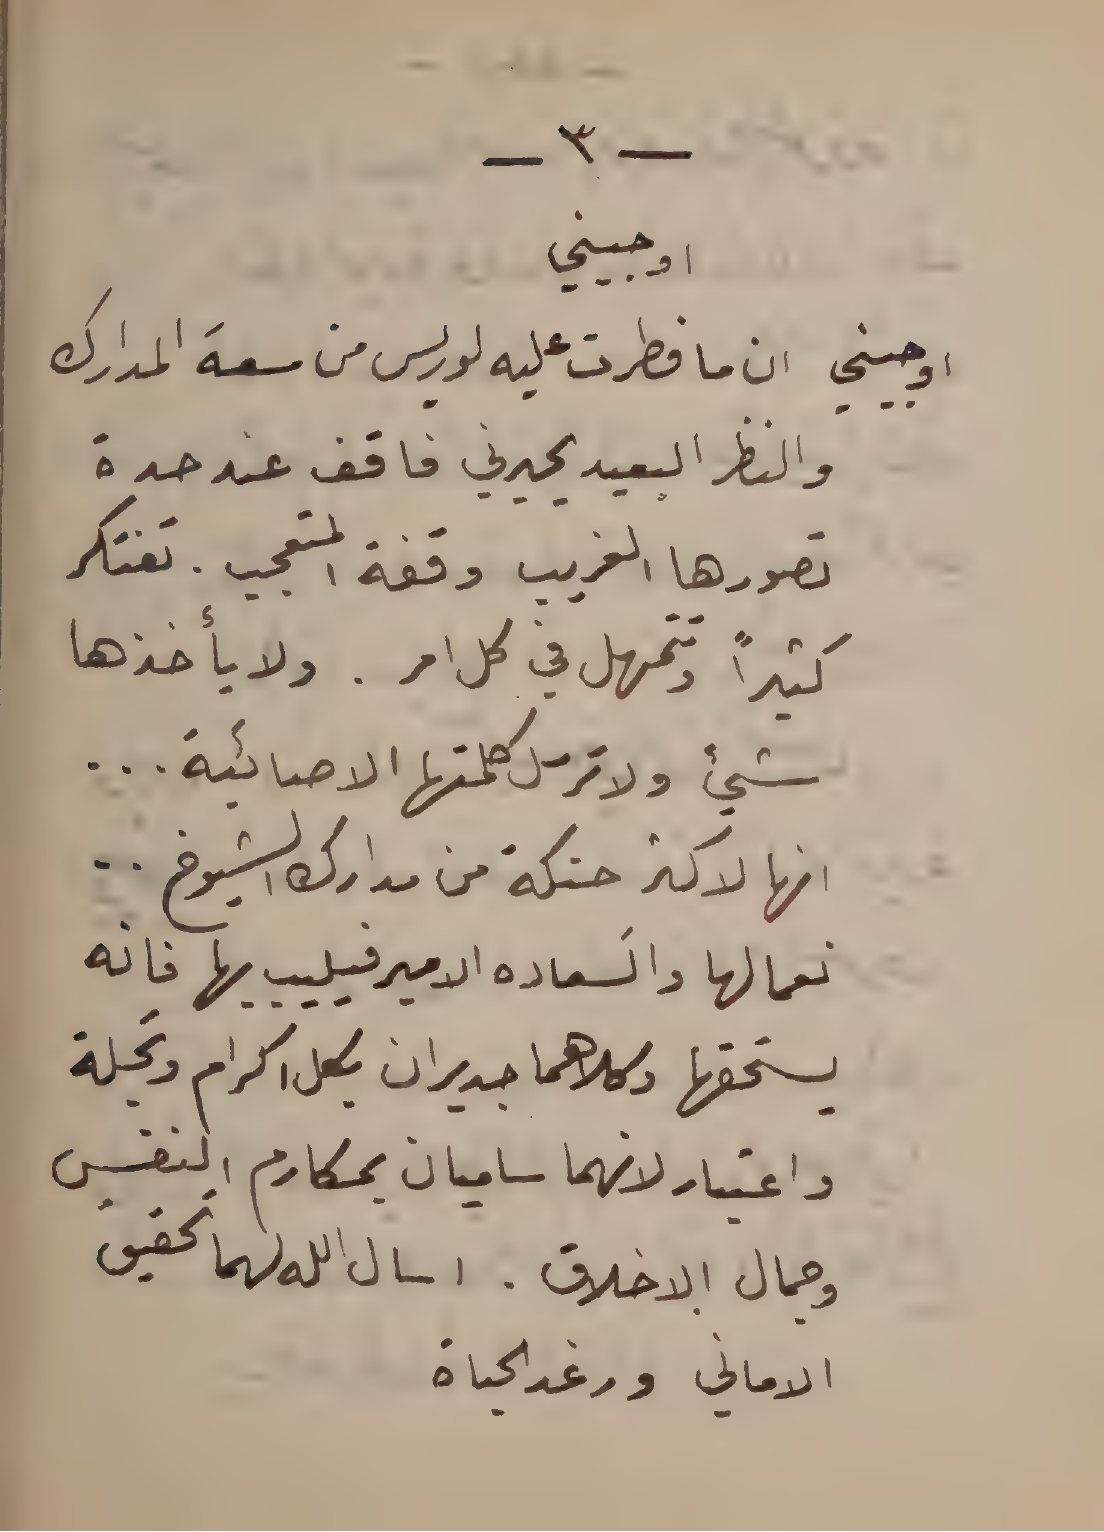 — ٣ —
اوجيني
اوجيني ان ما فطرت عليه لوريس من سعة المدارك
والنظر البعيد يحيرني فاقف عند حدة
تصورها الغريب وقفة المتعجب . تفتكر
كثيراً وتتمهل في كل امر . ولا يأخذها
شيئ ولا ترسل كلمتها الا صائبة ...
انها لاكثر حنكة من مدارك الشيوخ ..
نعما لها والسعاده الامير فيليب بها فانه
يستحقها وكلاهما جديران بكل اكرام وتجلة
واعتبار لانهما ساميان بمكارم النفس
وجمال الاخلاق . اسال الله لهما تحقيق
الاماني ورغد الحياة